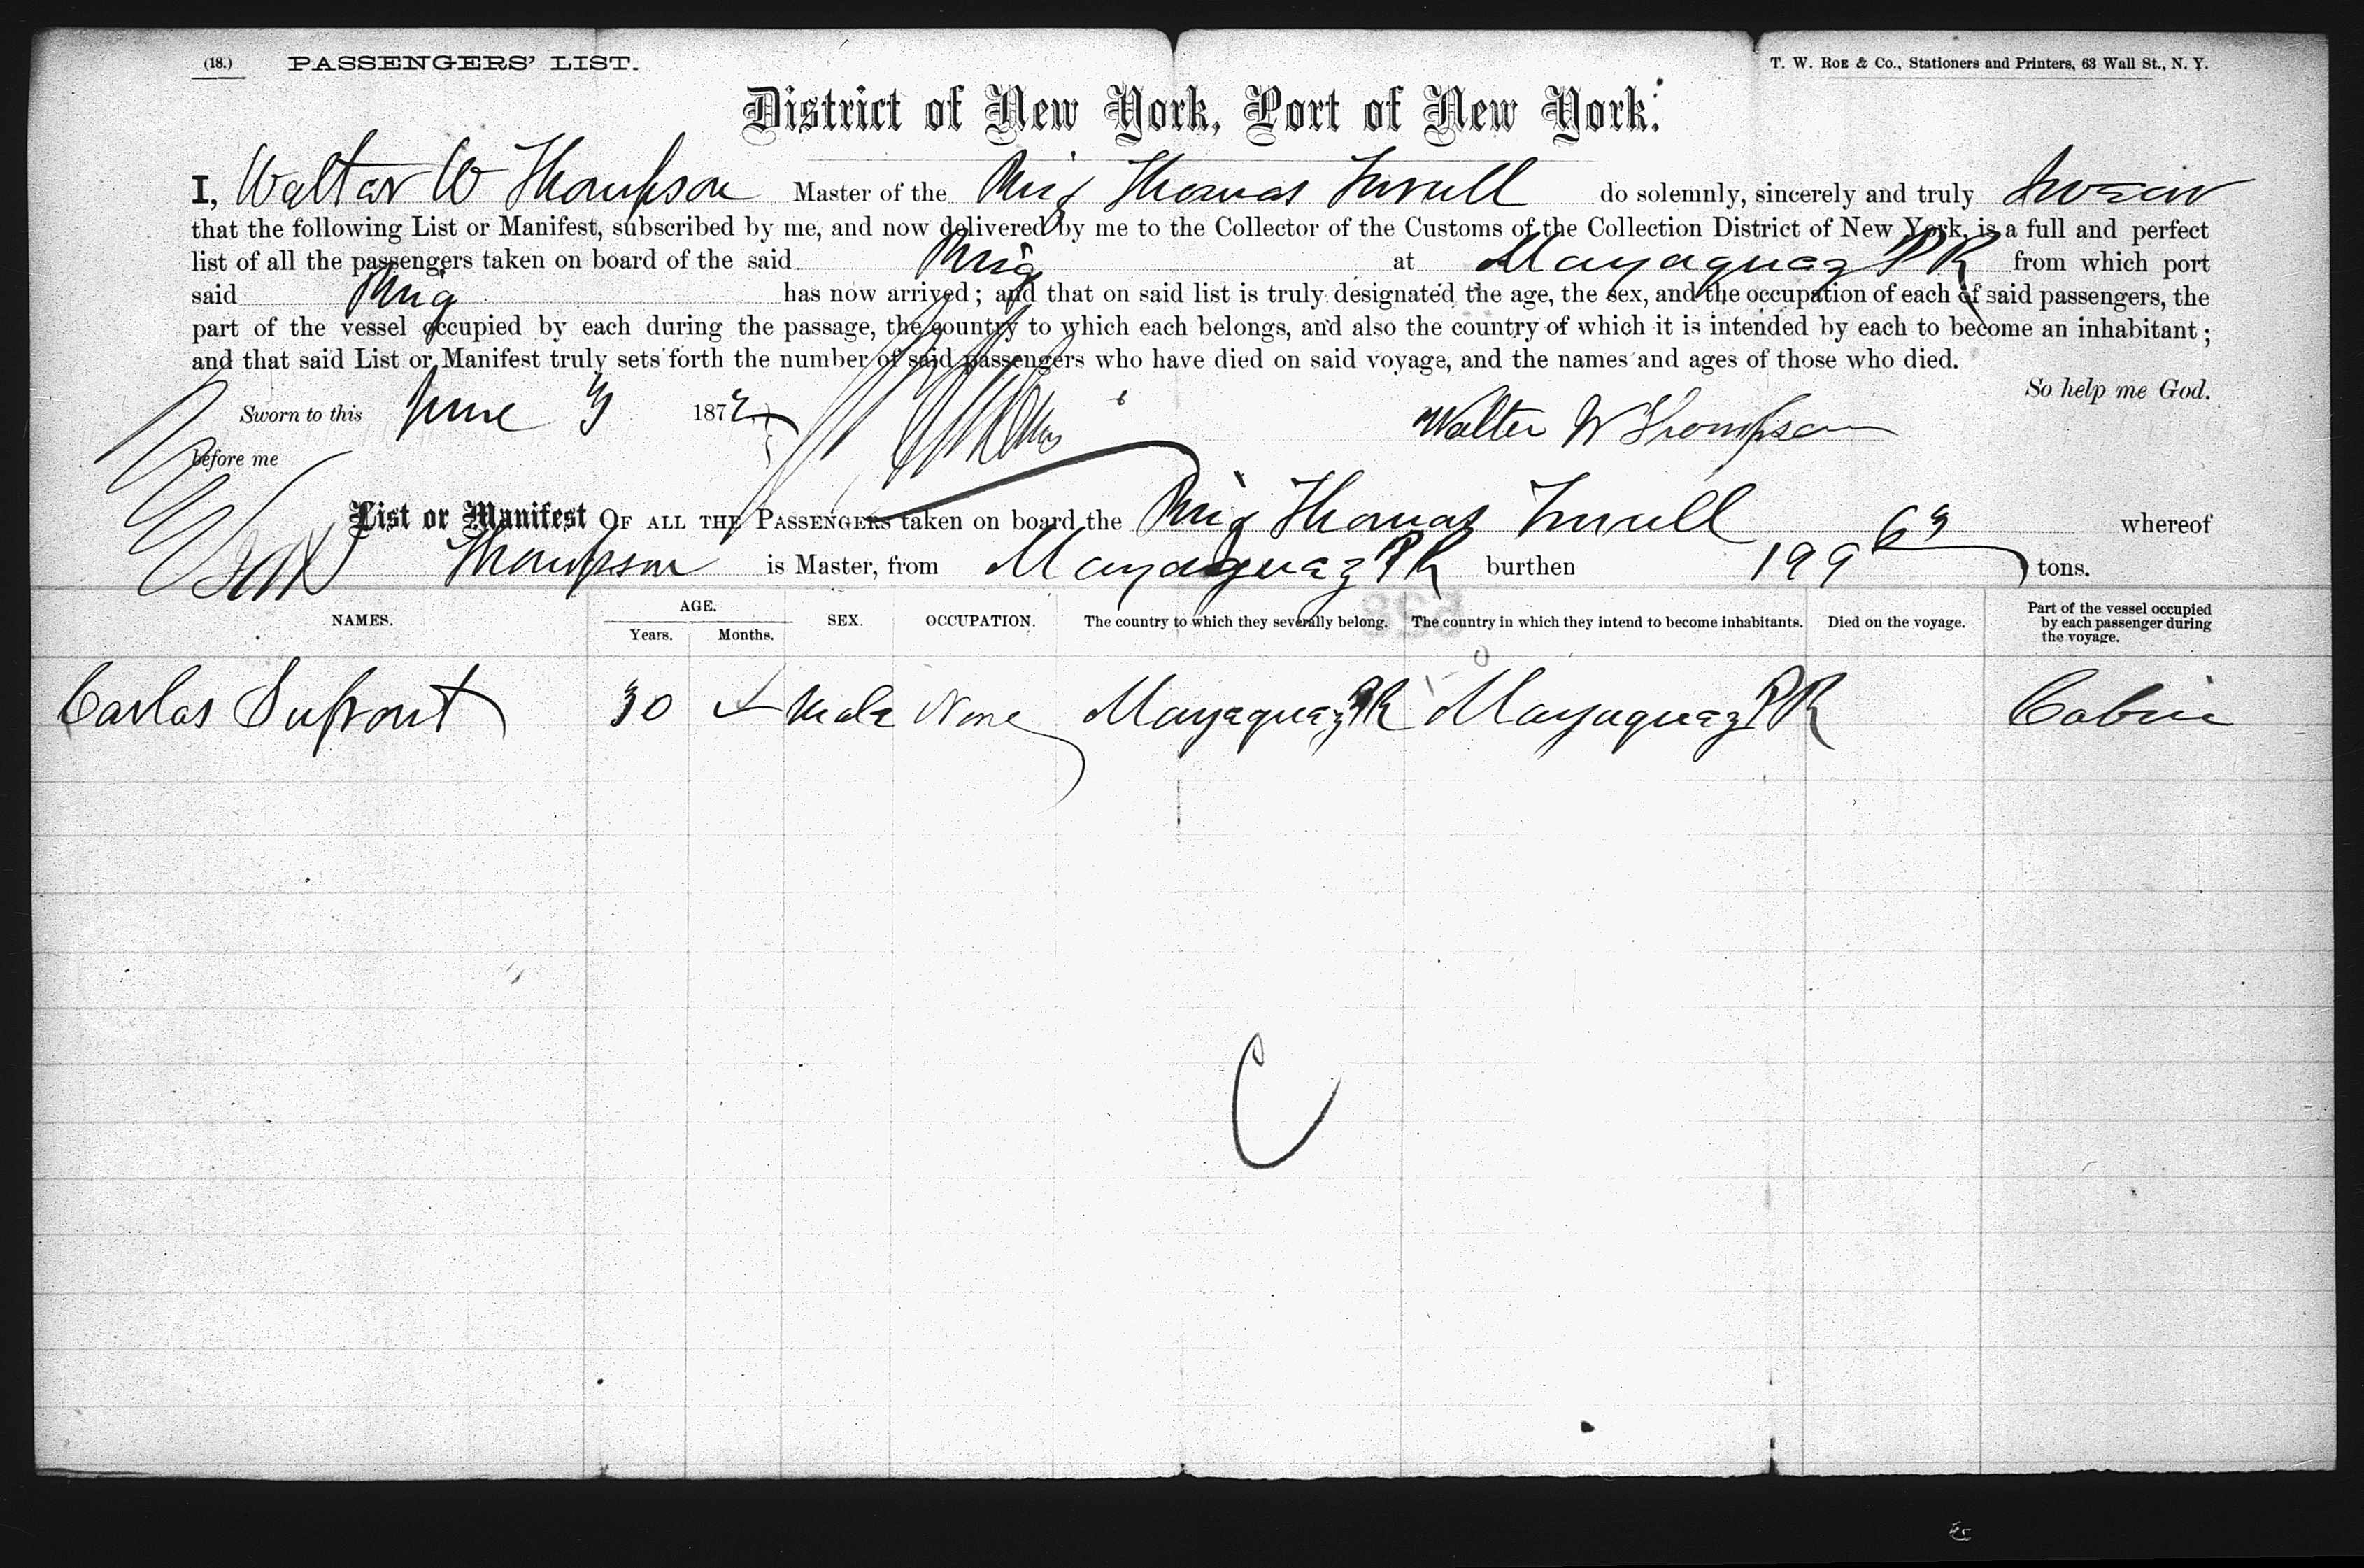 (18.) PASSENGERS' LIST.
T. W. Roe & Co., Stationers and Printers, 63 Wall St., N. Y.
District of New York, Port of New York.
I, Walter W Thompson Master of the Brig Thomas Turull do solemnly, sincerely and truly Swear
that the following List or Manifest, subscribed by me, and now delivered by me to the Collector of the Customs of the Collection District of New York, is a full and perfect
list of all the passengers taken on board of the said Brig at Mayaguez PR from which port
said Brig has now arrived; and that on said list is truly designated the age, the sex, and the occupation of each of said passengers, the
part of the vessel occupied by each during the passage, the country to which each belongs, and also the country of which it is intended by each to become an inhabitant;
and that said List or Manifest truly sets forth the number of said passengers who have died on said voyage, and the names and ages of those who died.
So help me God.
Sworn to this June 3 1872 Walter W Thompson
before me
List or Manifest OF ALL THE PASSENGERS taken on board the Brig Thomas Turull whereof
Thompson is Master, from Mayaguez PR burthen 199 63 tons.
NAMES. AGE. Years. Months. SEX. OCCUPATION. The country to which they severally belong. The country in which they intend to become inhabitants. Died on the voyage. Part of the vessel occupied by each passenger during the voyage.
Carlos Dupont 30 Male None Mayaguez PR Mayaguez PR Cabin
C